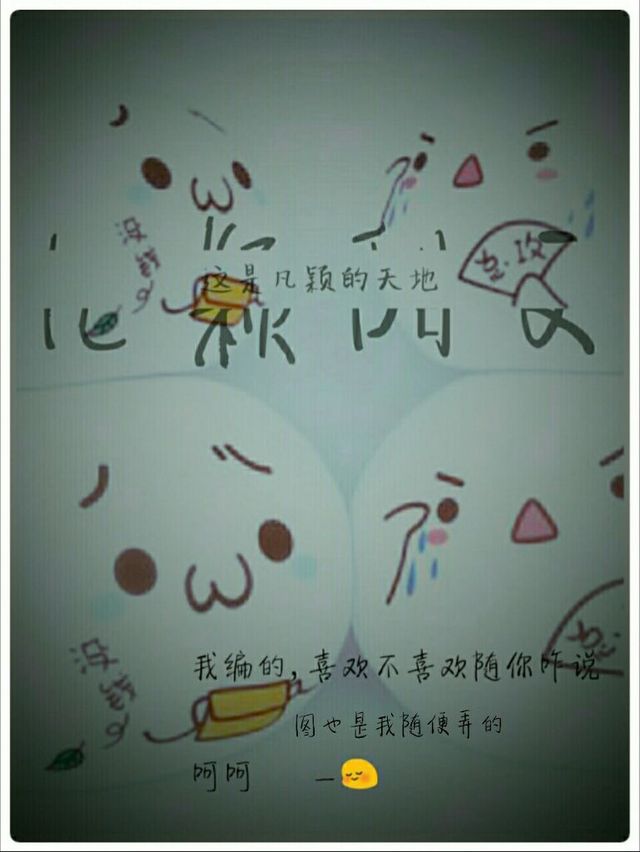 没钱
总攻
这是凡颖的天地
没钱
总
我编的,喜欢不喜欢随你咋说
图也是我随便弄的
呵呵 —😌